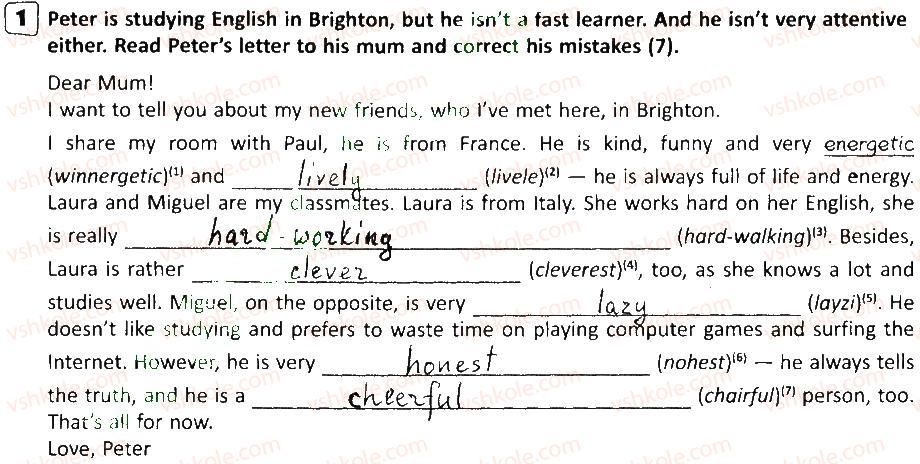 1 Peter is studying English in Brighton, but he isn't a fast learner. And he isn't very attentive
either. Read Peter's letter to his mum and correct his mistakes (7).
Dear Mum!
I want to tell you about my new friends, who I've met here, in Brighton.
I share my room with Paul, he is from France. He is kind, funny and very energetic
(winnergetic)(1) and lively (livele)(2) — he is always full of life and energy.
Laura and Miguel are my classmates. Laura is from Italy. She works hard on her English, she
is really hard-working (hard-walking)(3). Besides,
Laura is rather clever (cleverest)(4), too, as she knows a lot and
studies well. Miguel, on the opposite, is very lazy (layzi)(5). He
doesn't like studying and prefers to waste time on playing computer games and surfing the
Internet. However, he is very honest (nohest)(6) — he always tells
the truth, and he is a cheerful (chairful)(7) person, too.
That's all for now.
Love, Peter